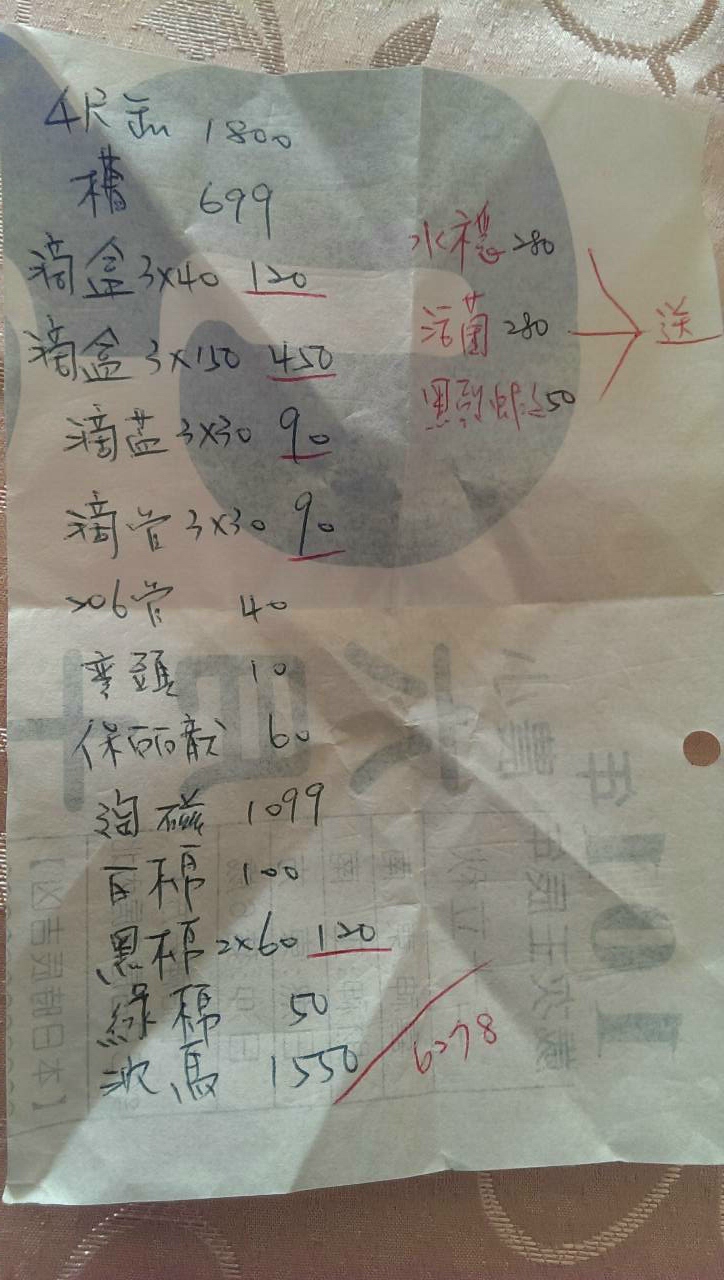 4尺缸 1800
槽 699
滴盒 3x40 120
滴盒 3x150 450
滴盖 3x30 90
滴管 3x30 90
206管 40
彎頭 10
保丽龍 60
淘磁 1099
白棉 100
黑棉 2x60 120
綠棉 50
沉馬 1550
6278
水穩 280
活菌 280
50
送